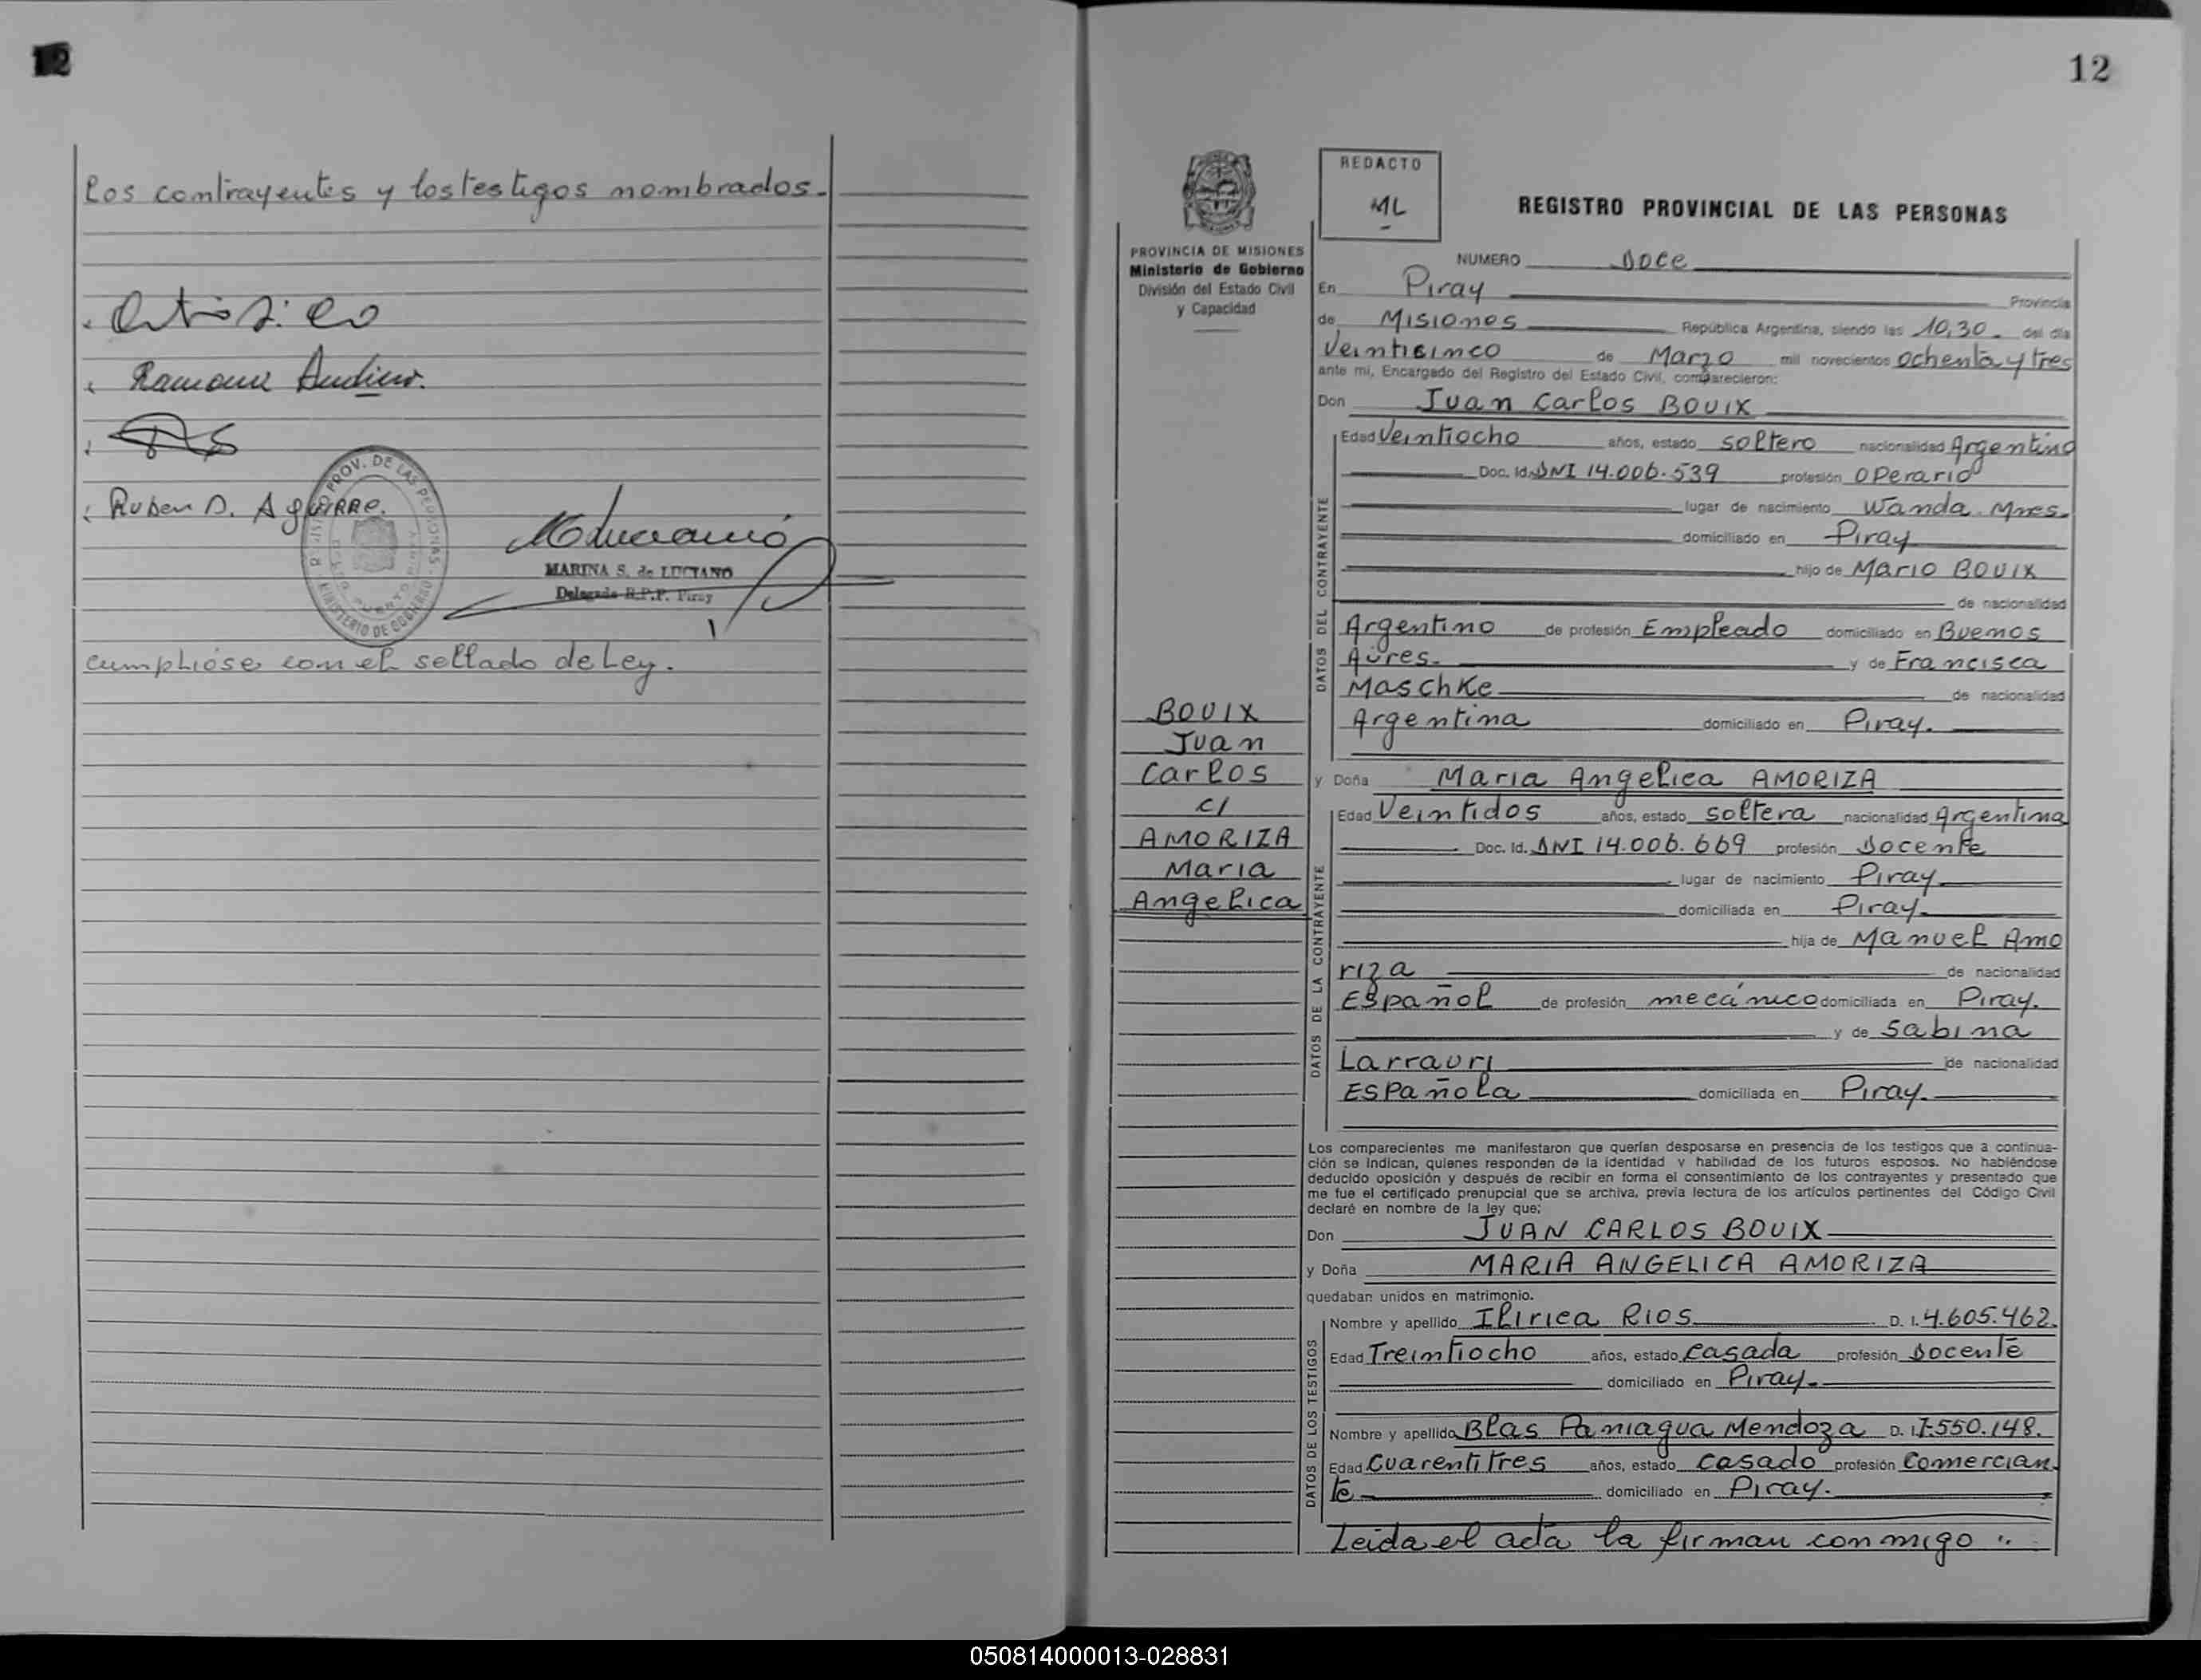 12
Los contrayentes y los testigos nombrados.-
Ramona
Ruben D. AguiRRe.
MARINA S. de LUCIANO
Delegada R.P.P. Piray
cumplióse con el sellado de Ley.
12
REDACTO
ML
REGISTRO PROVINCIAL DE LAS PERSONAS
PROVINCIA DE MISIONES
Ministerio de Gobierno
División del Estado Civil
y Capacidad
NUMERO Doce
En Piray Provincia
de Misiones República Argentina, siendo las 10,30 del día
Veinticinco de Marzo mil novecientos ochenta y tres
ante mi, Encargado del Registro del Estado Civil, comparecieron:
Don Juan Carlos BOUIX
Edad Veintiocho años, estado soltero nacionalidad Argentino
Doc. Id. DNI 14.006.539 profesión Operario
lugar de nacimiento Wanda. Mnes.
domiciliado en Piray
hijo de Mario BOUIX
de nacionalidad
Argentino de profesión Empleado domiciliado en Buenos
Aires. y de Francisca
Maschke de nacionalidad
Argentina domiciliado en Piray.
DATOS DEL CONTRAYENTE
BOUIX
Juan
Carlos
c/
AMORIZA
Maria
Angelica
y Doña Maria Angelica AMORIZA
Edad Veintidos años, estado soltera nacionalidad Argentina
Doc. Id. DNI 14.006.669 profesión Docente
lugar de nacimiento Piray
domiciliada en Piray.
hija de Manuel Amo
riza de nacionalidad
Español de profesión mecánico domiciliada en Piray.
y de Sabina
Larrauri de nacionalidad
Española domiciliada en Piray.
DATOS DE LA CONTRAYENTE
Los comparecientes me manifestaron que querían desposarse en presencia de los testigos que a continua-
ción se indican, quienes responden de la identidad y habilidad de los futuros esposos. No habiéndose
deducido oposición y después de recibir en forma el consentimiento de los contrayentes y presentado que
me fue el certificado prenupcial que se archiva, previa lectura de los artículos pertinentes del Código Civil
declaré en nombre de la ley que:
Don JUAN CARLOS BOUIX
y Doña MARIA ANGELICA AMORIZA
quedaban unidos en matrimonio.
Nombre y apellido Ilirica RIOS D. I. 4.605.462.
Edad Treintiocho años, estado casada profesión Docente
domiciliado en Piray.
Nombre y apellido Blas Paniagua Mendoza D. I. 7.550.148.
Edad Cuarentitres años, estado casado profesión Comercian
te domiciliado en Piray.
DATOS DE LOS TESTIGOS
Leida el acta la firman conmigo
050814000013-028831